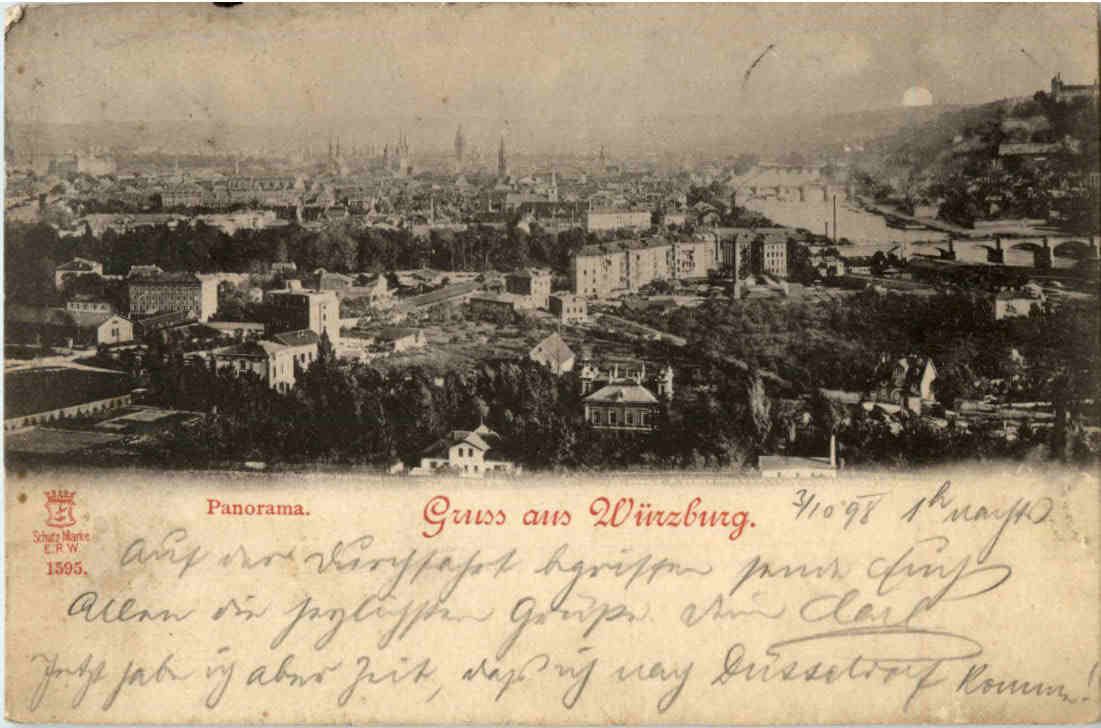 Panorama.
Gruss aus Würzburg.
3/10 98 1h nachts
Schutz Marke
E.R.W.
1595.
Auf der Durchfahrt begriffen sende Euch
Allen die herzlichsten Grüße. Dein Carl
Jetzt habe ich aber Zeit, daß ich nach Düsseldorf komme!